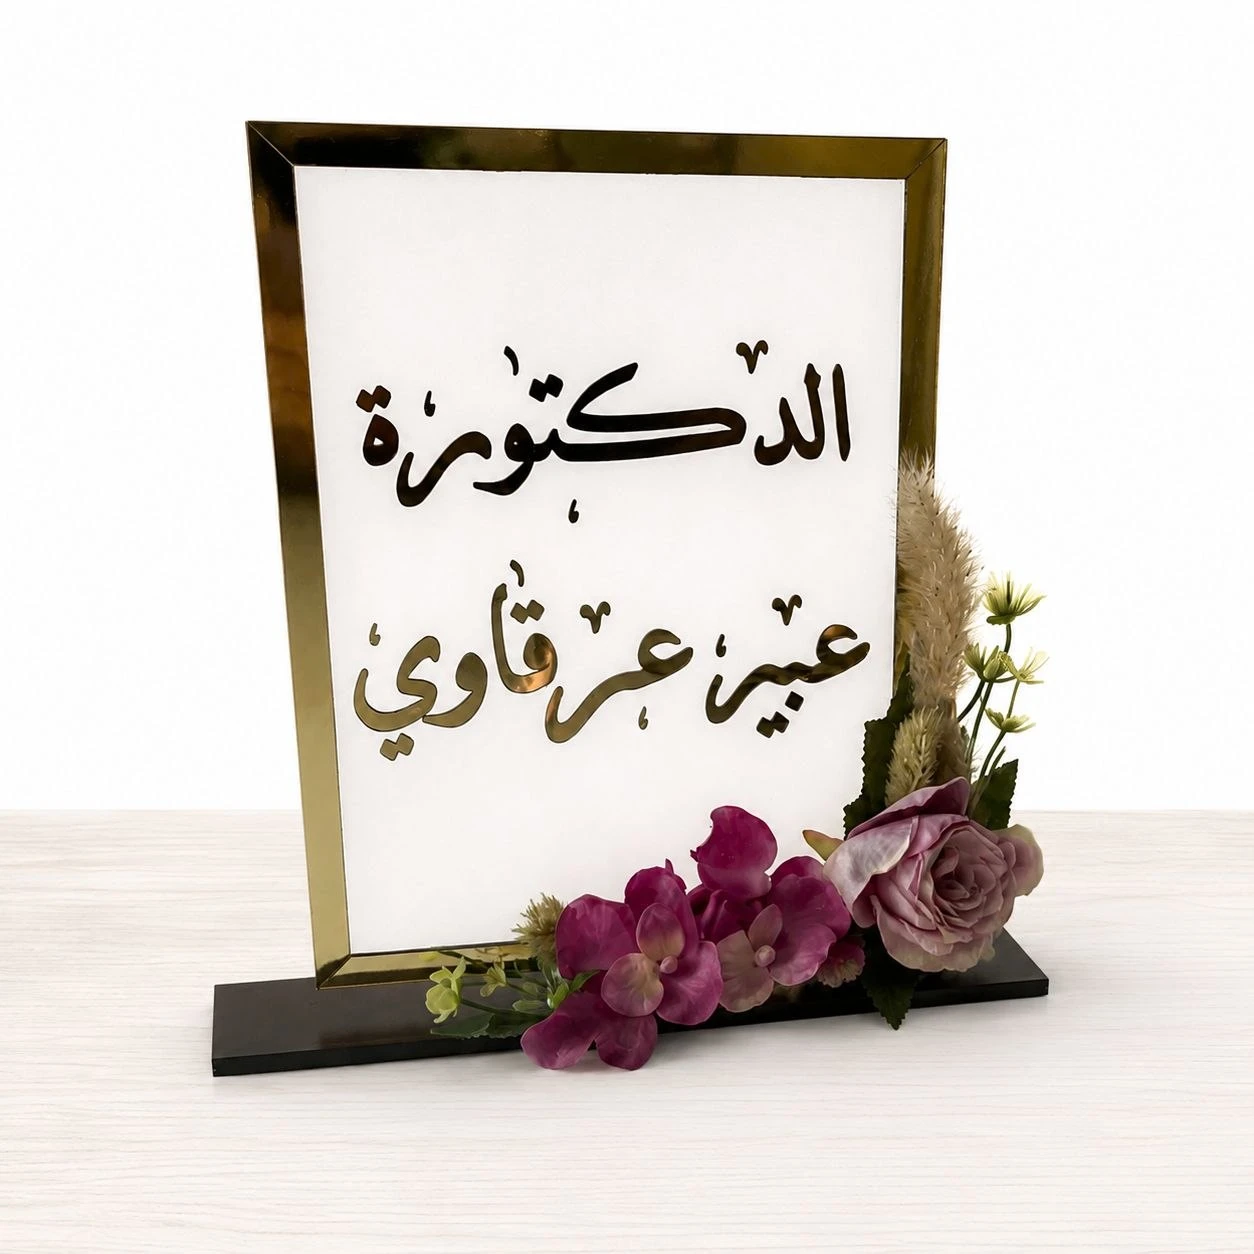 الدكتورة
عبير عرقاوي